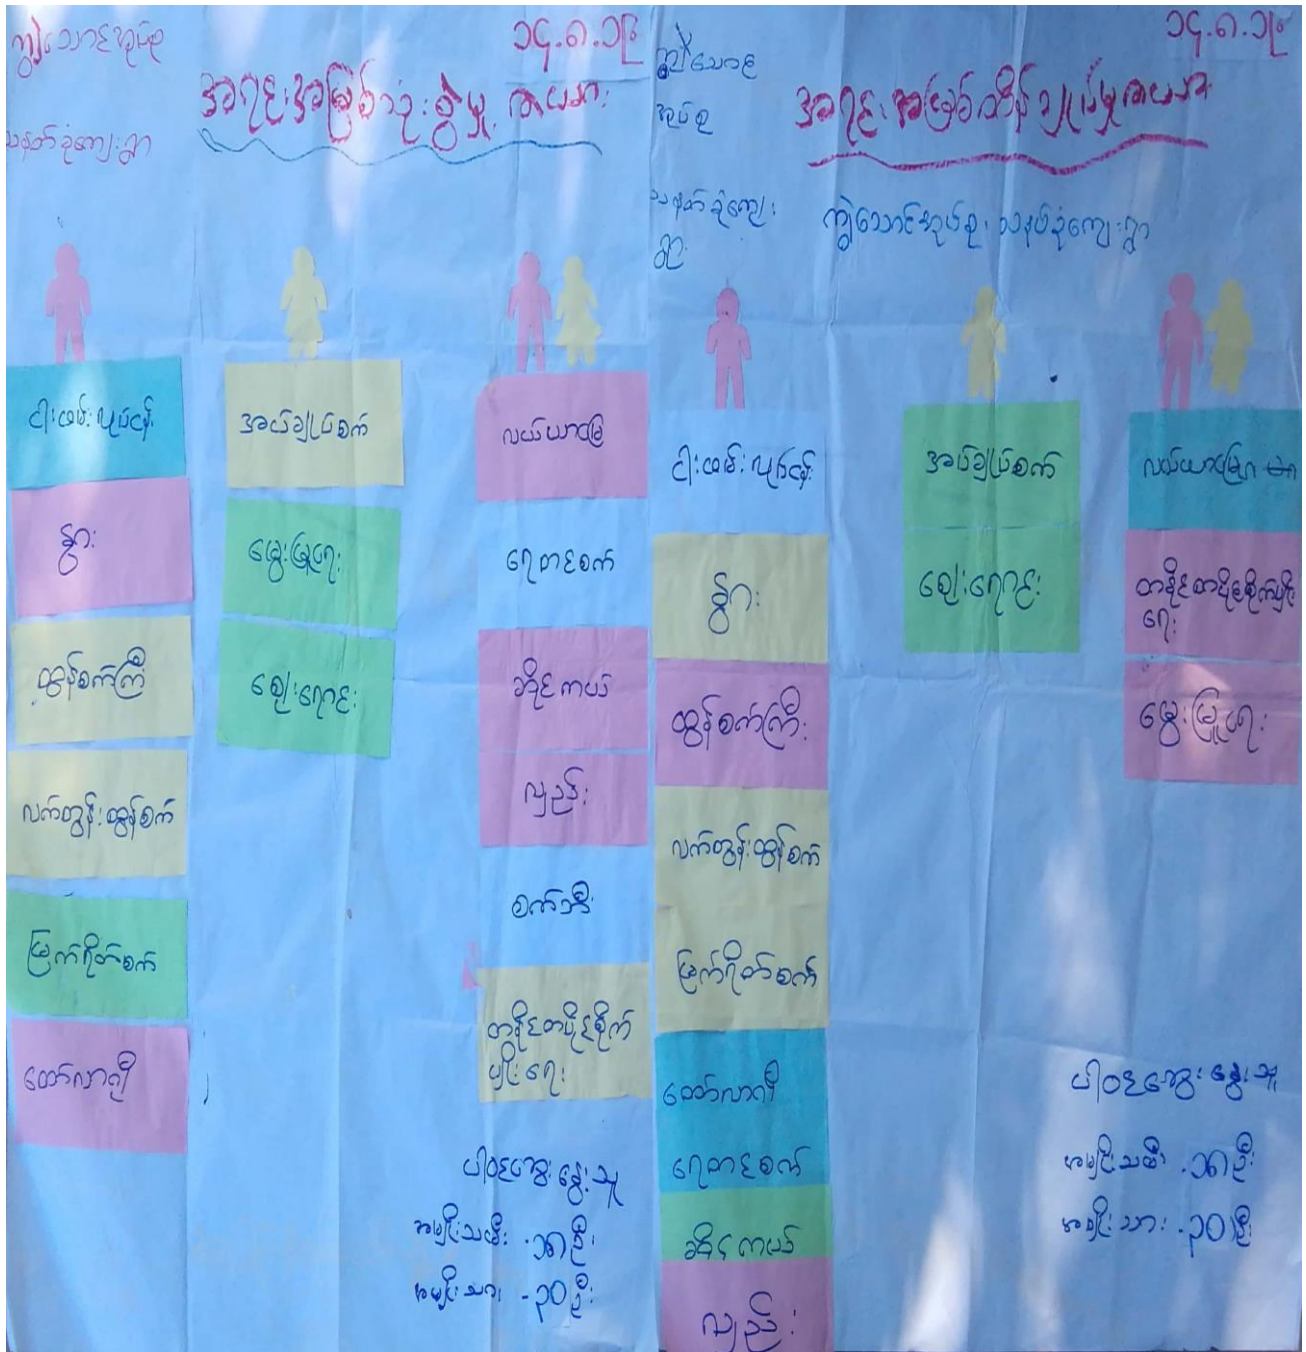 ကျွဲသောင်အုပ်စု
သနတ်ခုံကျေးရွာ
၁၄.၈.၁၉
အရင်းအမြစ်သုံးစွဲမှု ဇယား
ငါးဖမ်းလုပ်ငန်း
နွား
ထွန်စက်ကြီး
လက်တွန်းထွန်စက်
မြက်ရိတ်စက်
ထော်လာဂျီ
အပ်ချုပ်စက်
မွေးမြူရေး
ဈေးရောင်း
လယ်ယာမြေ
ရေတင်စက်
ဆိုင်ကယ်
လှည်း
စက်ဘီး
တနိုင်တပိုင်စိုက်
ပျိုးရေး
ပါဝင်ဆွေးနွေးသူ
အမျိုးသမီး - ၁၈ဦး
အမျိုးသား - ၃၀ဦး
ကျွဲသောင်
အုပ်စု
သနတ်ခုံကျေး
ရွာ
၁၄.၈.၁၉
အရင်းအမြစ်ထိန်းချုပ်မှုဇယား
ကျွဲသောင်အုပ်စု၊ သနပ်ခုံကျေးရွာ
ငါးဖမ်းလုပ်ငန်း
နွား
ထွန်စက်ကြီး
လက်တွန်းထွန်စက်
မြက်ရိတ်စက်
ထော်လာဂျီ
ရေတင်စက်
ဆိုင်ကယ်
လှည်း
အပ်ချုပ်စက်
ဈေးရောင်း
လယ်ယာမြေ
တနိုင်တပိုင်စိုက်ပျိုး
ရေး
မွေးမြူရေး
ပါဝင်ဆွေးနွေးသူ
အမျိုးသမီး - ၁၈ဦး
အမျိုးသား - ၃၀ဦး